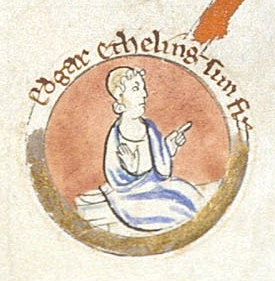 edgar etheling sun fiz